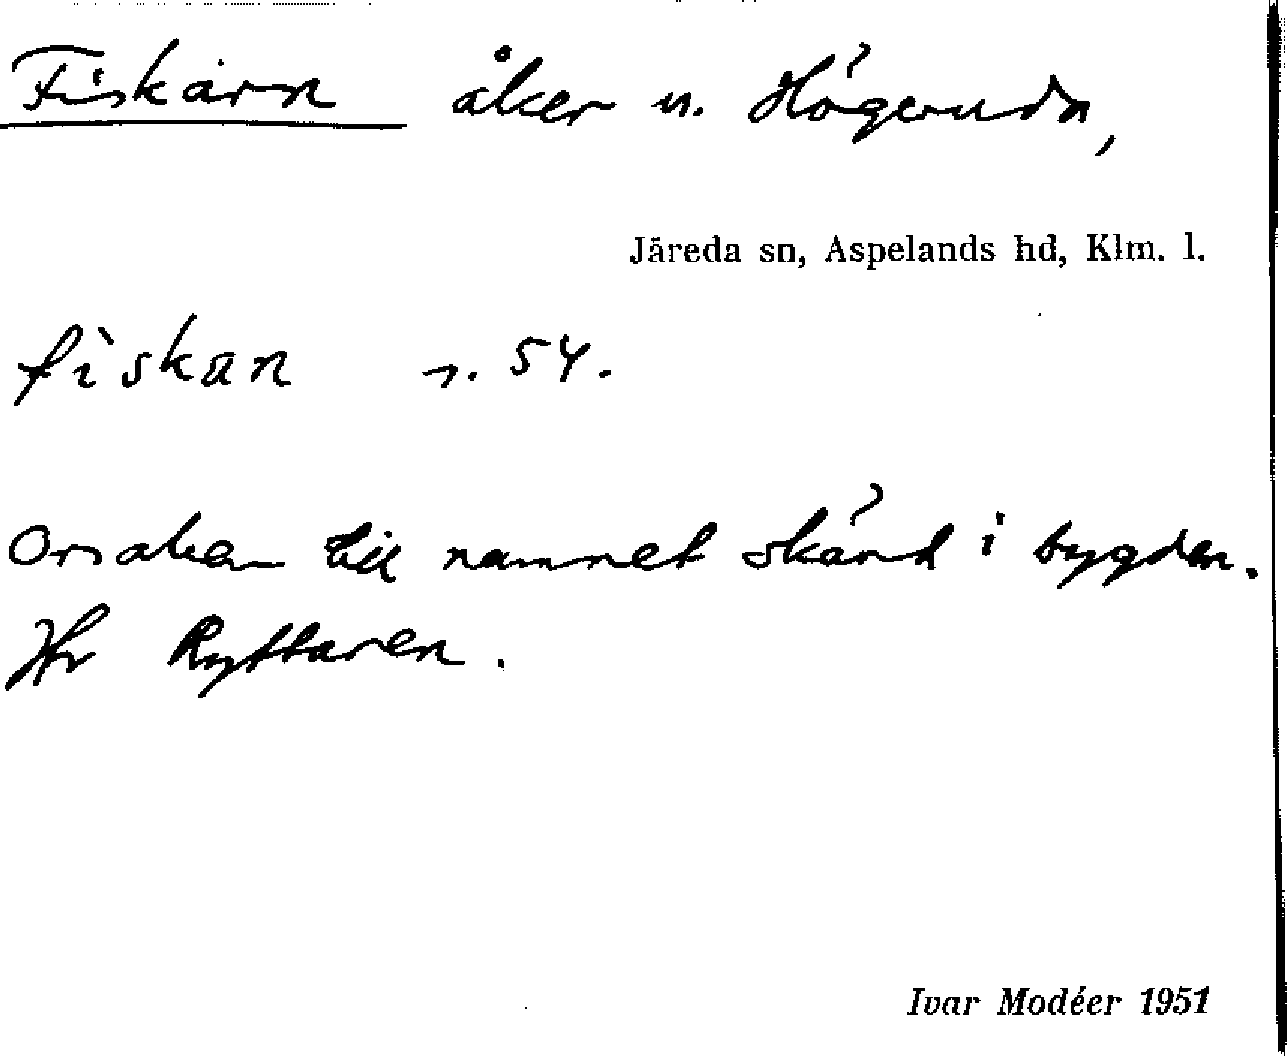 Fiskarn åker u. Högeruda,
Järeda sn, Aspelands hd, Klm. l.
fìskan n. 54.
Orsaken till namnet okänd i bygden.
Jfr Ryttaren.
Ivar Modéer 1951